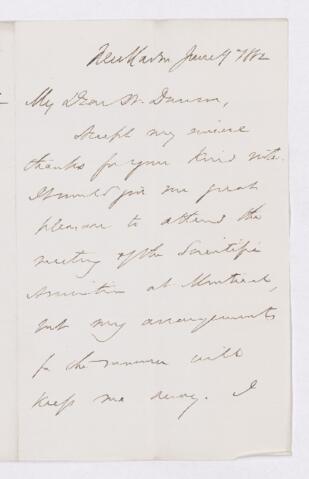 New Haven June 9 1882
My Dear Dr. Dawson,
Accept my sincere
thanks for your kind note.
It would give me great
pleasure to attend the
meeting of the Scientific
Association at Montreal,
but my arrangements
for the summer will
keep me away. I